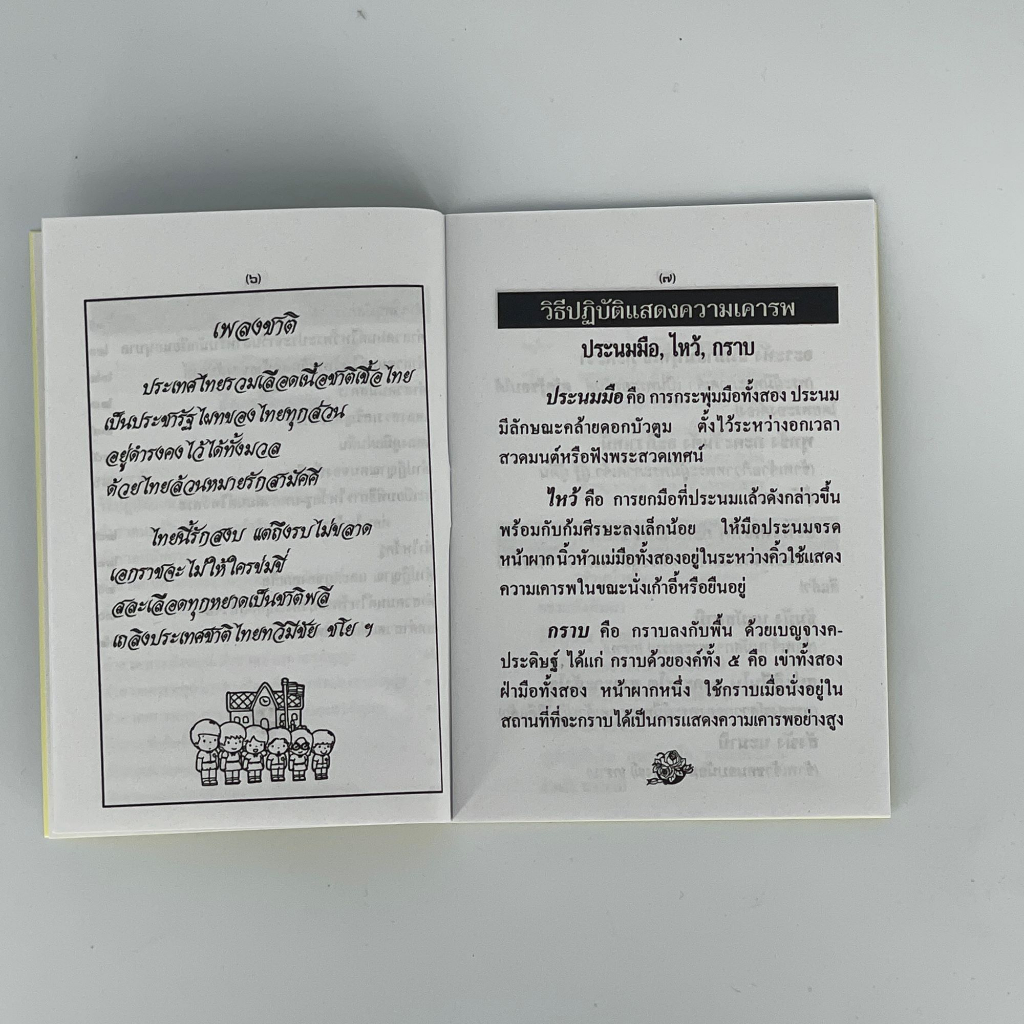 (๖)
เพลงชาติ
ประเทศไทยรวมเลือดเนื้อชาติเชื้อไทย
เป็นประชารัฐ ไผทของไทยทุกส่วน
อยู่ดำรงคงไว้ได้ทั้งมวล
ด้วยไทยล้วนหมายรักสามัคคี
ไทยนี้รักสงบ แต่ถึงรบไม่ขลาด
เอกราชจะไม่ให้ใครข่มขี่
สละเลือดทุกหยาดเป็นชาติพลี
เถลิงประเทศชาติไทยทวีมีชัย ชโย ฯ
(๗)
วิธีปฏิบัติแสดงความเคารพ
ประนมมือ, ไหว้, กราบ
ประนมมือ คือ การกระพุ่มมือทั้งสอง ประนม
มีลักษณะคล้ายดอกบัวตูม ตั้งไว้ระหว่างอกเวลา
สวดมนต์หรือฟังพระสวดเทศน์
ไหว้ คือ การยกมือที่ประนมแล้วดังกล่าวขึ้น
พร้อมกับก้มศีรษะลงเล็กน้อย ให้มือประนมจรด
หน้าผากนิ้วหัวแม่มือทั้งสองอยู่ในระหว่างคิ้วใช้แสดง
ความเคารพในขณะนั่งเก้าอี้หรือยืนอยู่
กราบ คือ กราบลงกับพื้น ด้วยเบญจางค-
ประดิษฐ์ ได้แก่ กราบด้วยองค์ทั้ง ๕ คือ เข่าทั้งสอง
ฝ่ามือทั้งสอง หน้าผากหนึ่ง ใช้กราบเมื่อนั่งอยู่ใน
สถานที่ที่จะกราบได้เป็นการแสดงความเคารพอย่างสูง